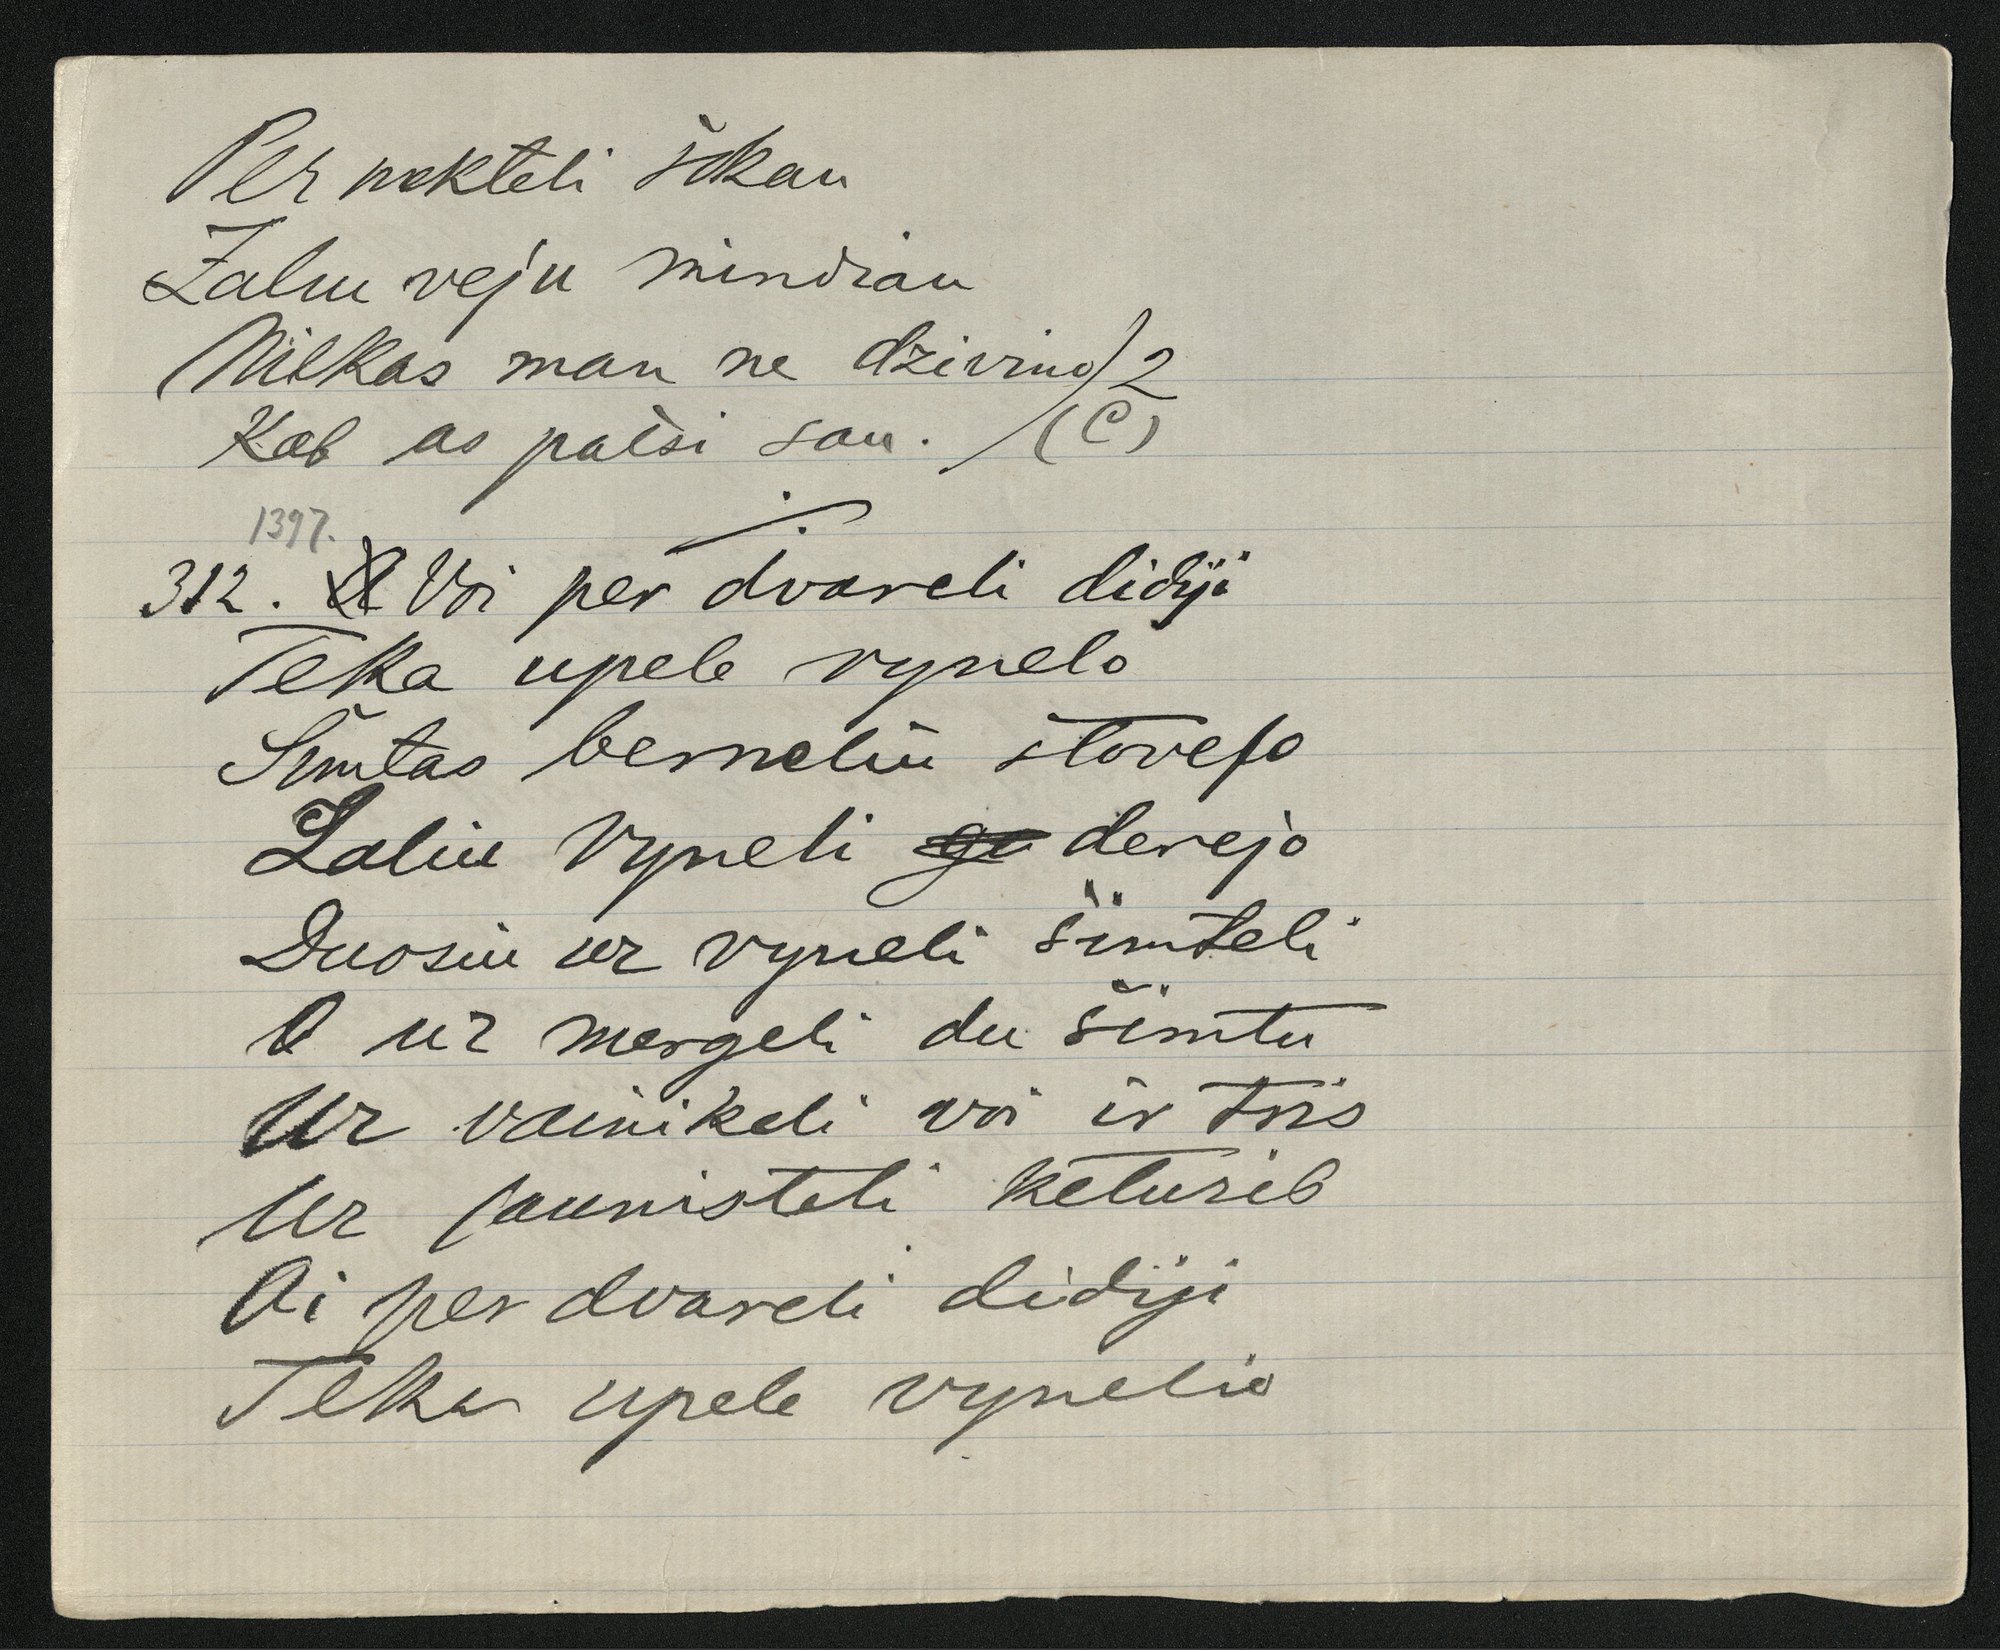 Per nakteli šokau
Žaliu veju mindžiau
Niekas man ne dživino) 2
Kab as patsi sau. (C)
1397.
312. Voi per dvareli didiji
Teka upele vynelo
Šimtas berneliu stovejo
Žaliu Vyneli derejo
Duosiu uz vyneli šimteli
O uz mergeli du šimtu
Uz vainikeli voi ir tris
Uz jaunisteli keturis
Oi per dvareli didiji
Teka upele vynelio